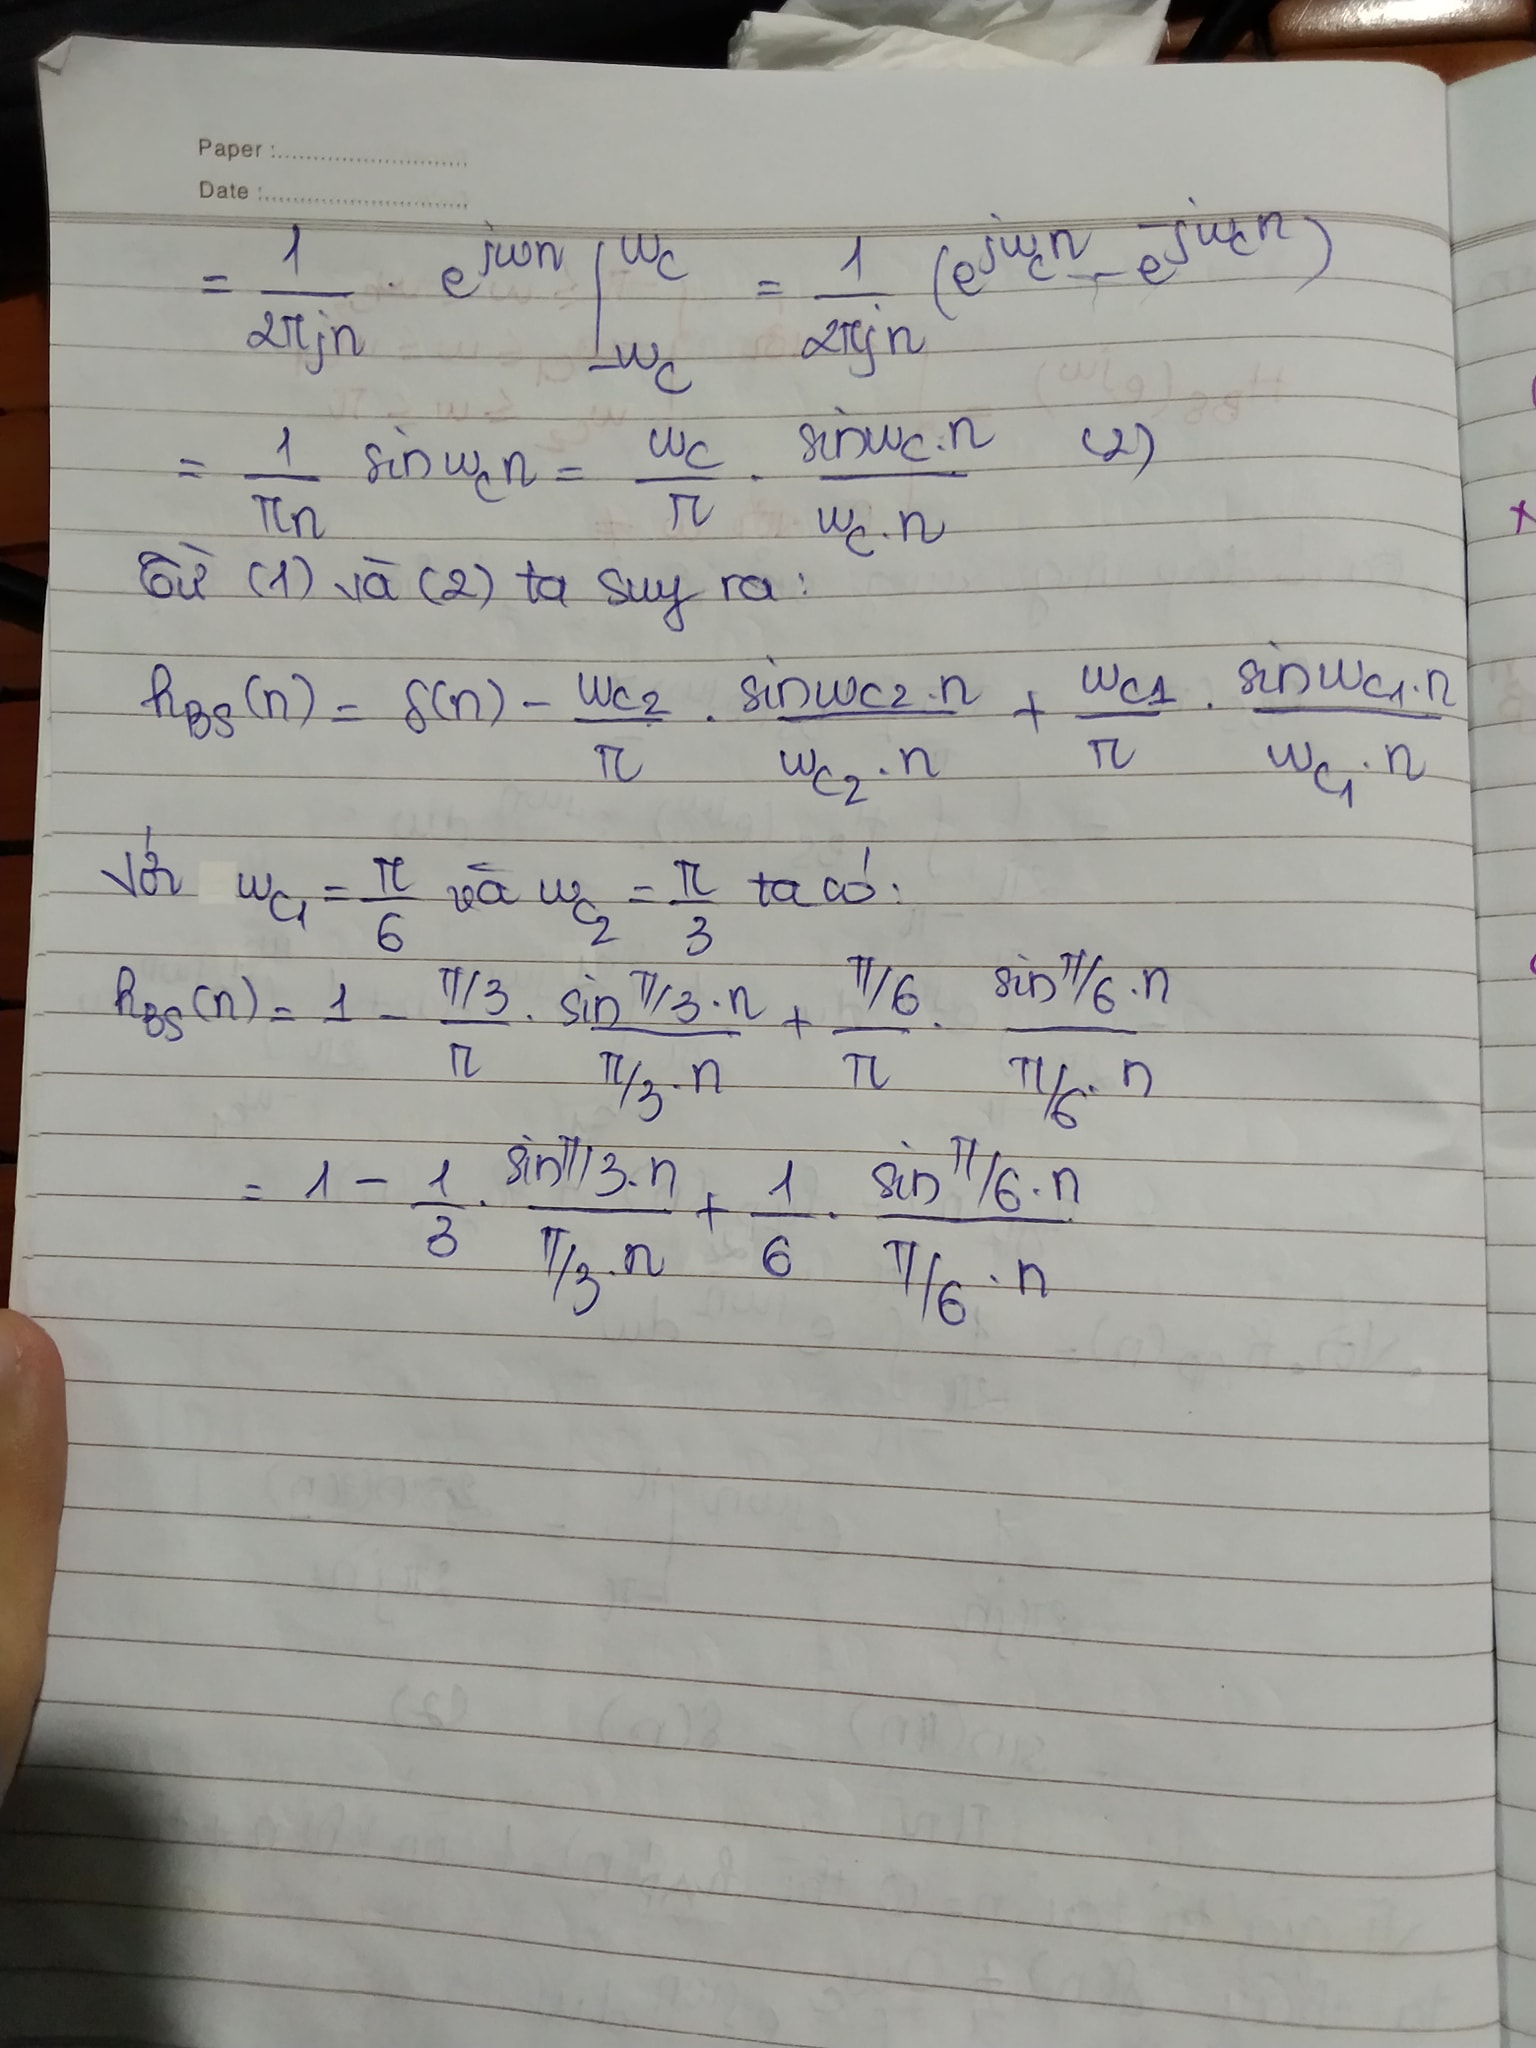 Paper :
Date :
= 1/(2πjn) · e^(jωn) |_(-ωc)^(ωc) = 1/(2πjn) (e^(jωcn) - e^(-jωcn))
= 1/(πn) sinωcn = ωc/π · sinωc.n/(ωc.n) (2)
Từ (1) và (2) ta suy ra:
hBS(n) = δ(n) - ωc2/π . sinωc2.n/(ωc2.n) + ωc1/π . sinωc1.n/(ωc1.n)
Với ωc1 = π/6 và ωc2 = π/3 ta có:
hBS(n) = 1 - (π/3)/π . sin π/3.n/(π/3.n) + (π/6)/π . sin π/6.n/(π/6.n)
= 1 - 1/3 . sin π/3.n/(π/3.n) + 1/6 . sin π/6.n/(π/6.n)